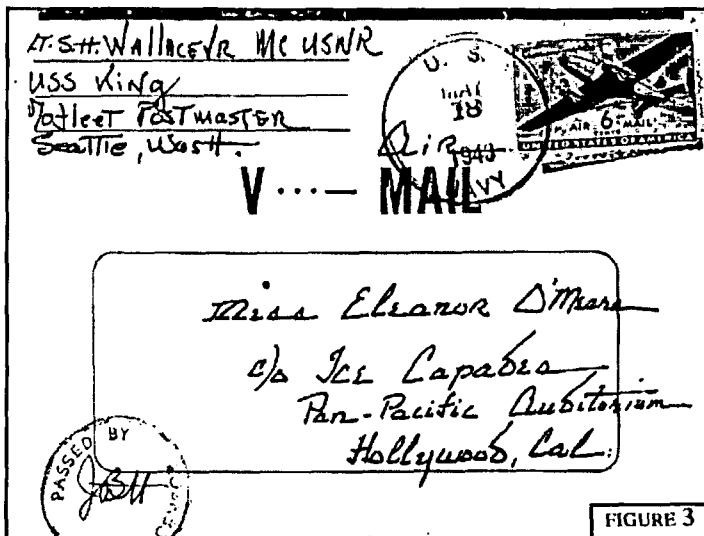 Lt. S.H. Wallace Jr MC USNR
USS King
Fleet Postmaster
Seattle, Wash.
U. S.
MAY
18
1943
NAVY
Air
AIR 6¢ MAIL
UNITED STATES OF AMERICA
V ···— MAIL
Miss Eleanor O'Meara
c/o Ice Capades
Pan-Pacific Auditorium
Hollywood, Cal.
PASSED BY
CENSOR
FIGURE 3